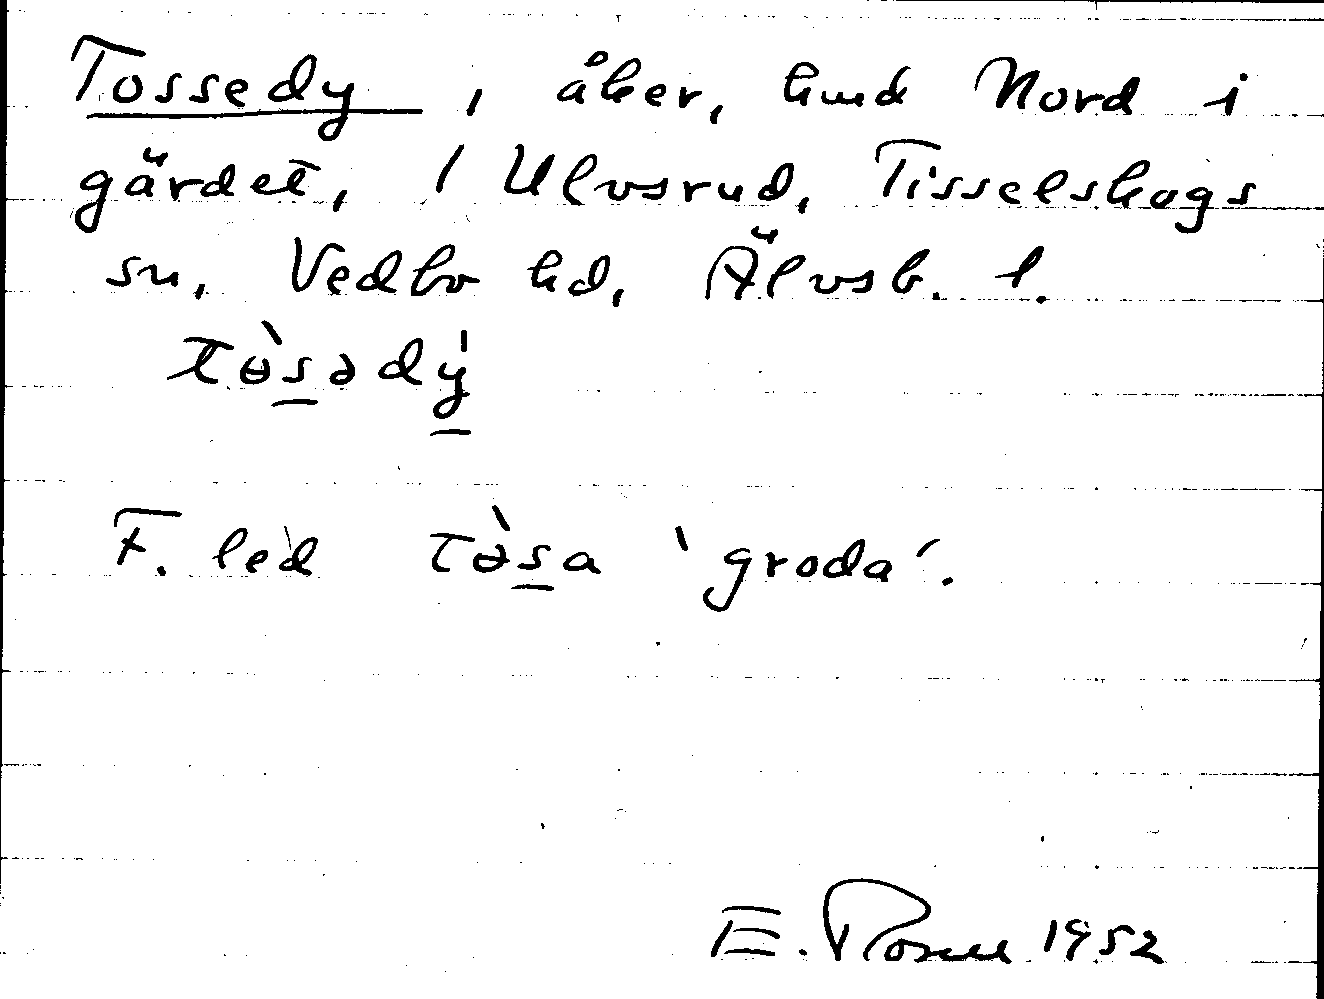 Tossedy, åker, kmd Nord i
gärdet, / Ulvsrud, Tisselskogs
sn, Vedbo hd, Älvsb. l.
tɵ̀sədy̍
F. led tɵ̀sa 'groda'.
E. Rosell 1952